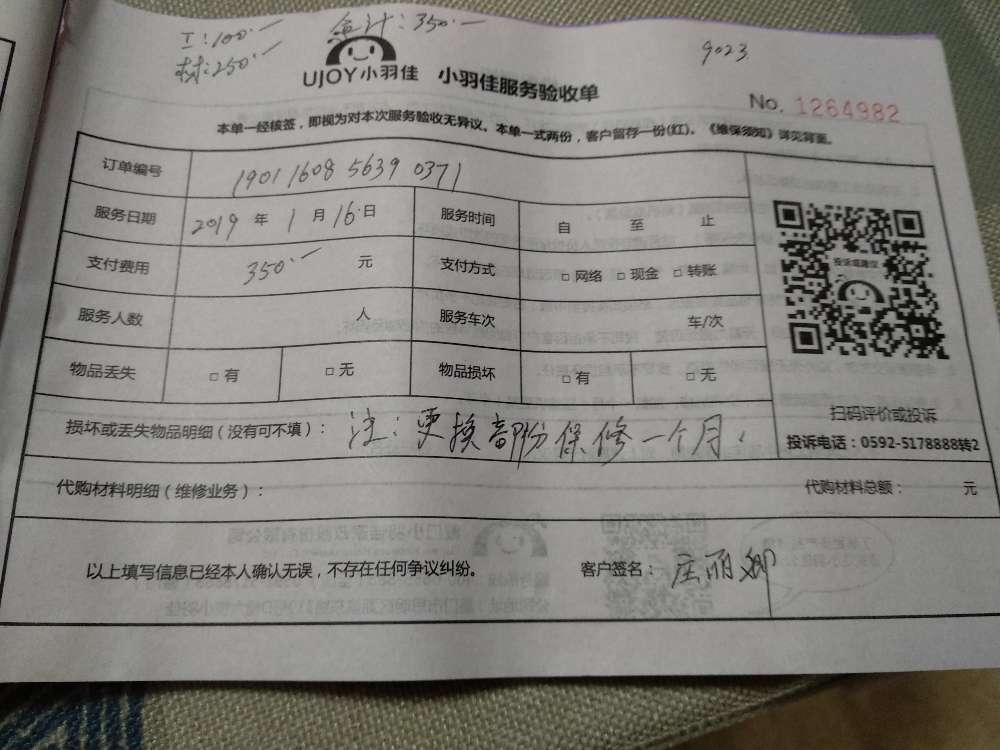 工:100.一 合计:350.一
材:250.一
9023
UJOY小羽佳 小羽佳服务验收单
No. 1264982
本单一经核签，即视为对本次服务验收无异议。本单一式两份，客户留存一份(红)。《维保须知》详见背面。
订单编号 1901 1608 5639 0371
服务日期 2019 年 1 月 16 日 服务时间 自 至 止
支付费用 350.一 元 支付方式 □ 网络 □ 现金 □ 转账
服务人数 人 服务车次 车/次
物品丢失 □ 有 □ 无 物品损坏 □ 有 □ 无
投诉或建议
扫码评价或投诉
投诉电话：0592-5178888转2
损坏或丢失物品明细（没有可不填）： 注：更换部份保修一个月.
代购材料明细（维修业务）： 代购材料总额： 元
以上填写信息已经本人确认无误，不存在任何争议纠纷。 客户签名： 庄丽娜